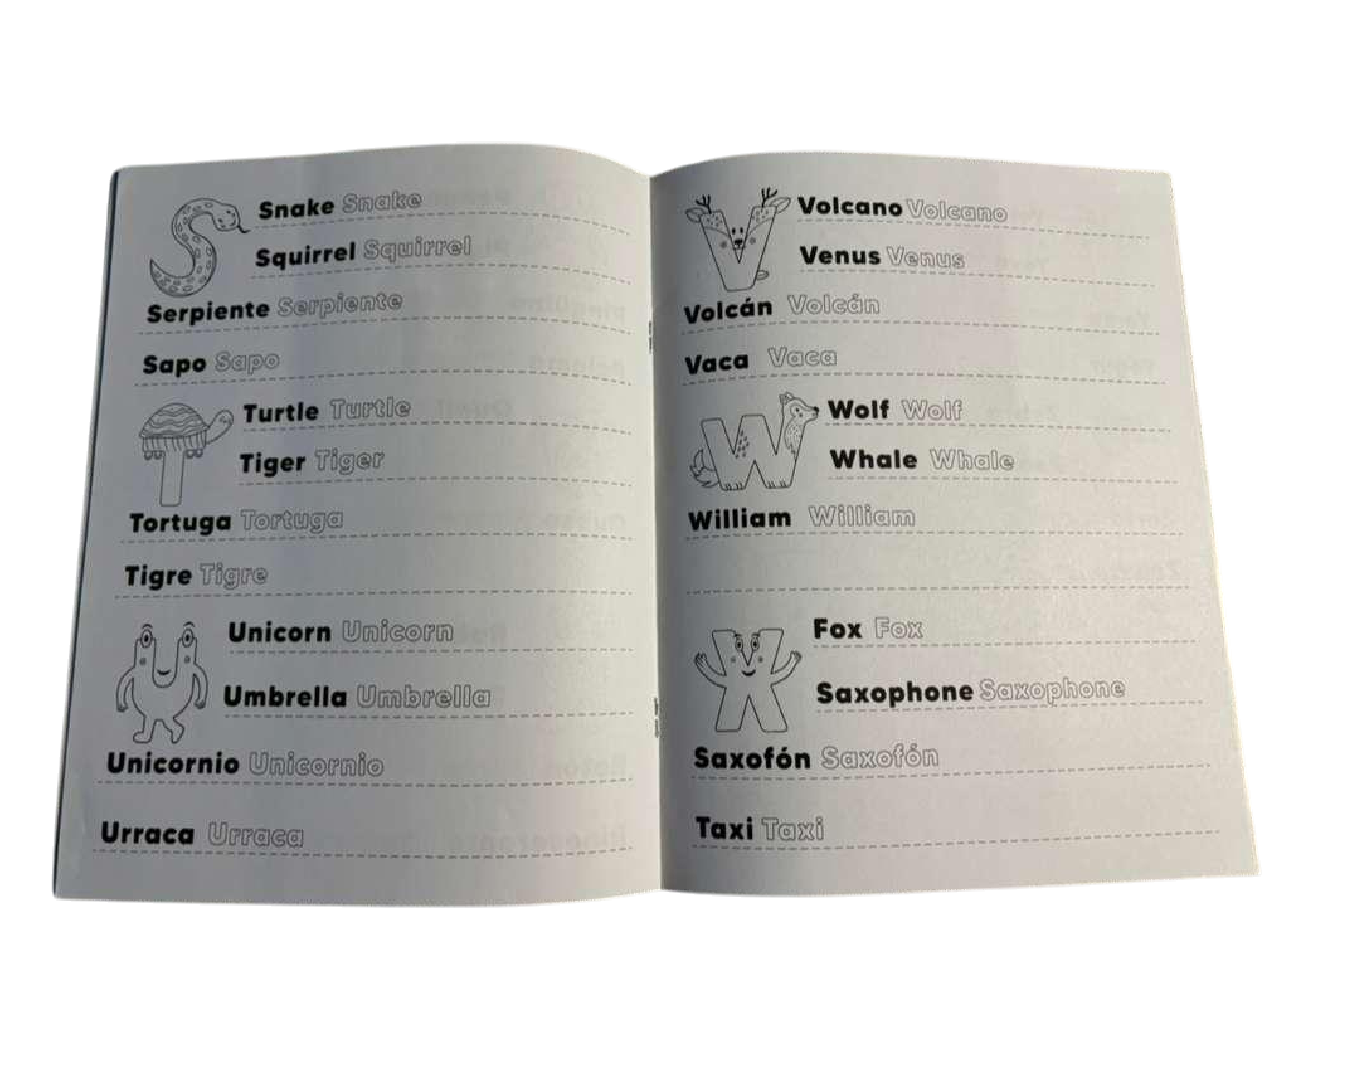 Snake Snake
Squirrel Squirrel
Serpiente Serpiente
Sapo Sapo
Turtle Turtle
Tiger Tiger
Tortuga Tortuga
Tigre Tigre
Unicorn Unicorn
Umbrella Umbrella
Unicornio Unicornio
Urraca Urraca
Volcano Volcano
Venus Venus
Volcán Volcán
Vaca Vaca
Wolf Wolf
Whale Whale
William William
Fox Fox
Saxophone Saxophone
Saxofón Saxofón
Taxi Taxi